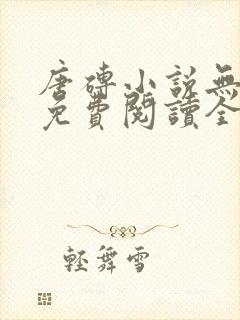 唐磚小說無
免費閱讀全
輕舞雪